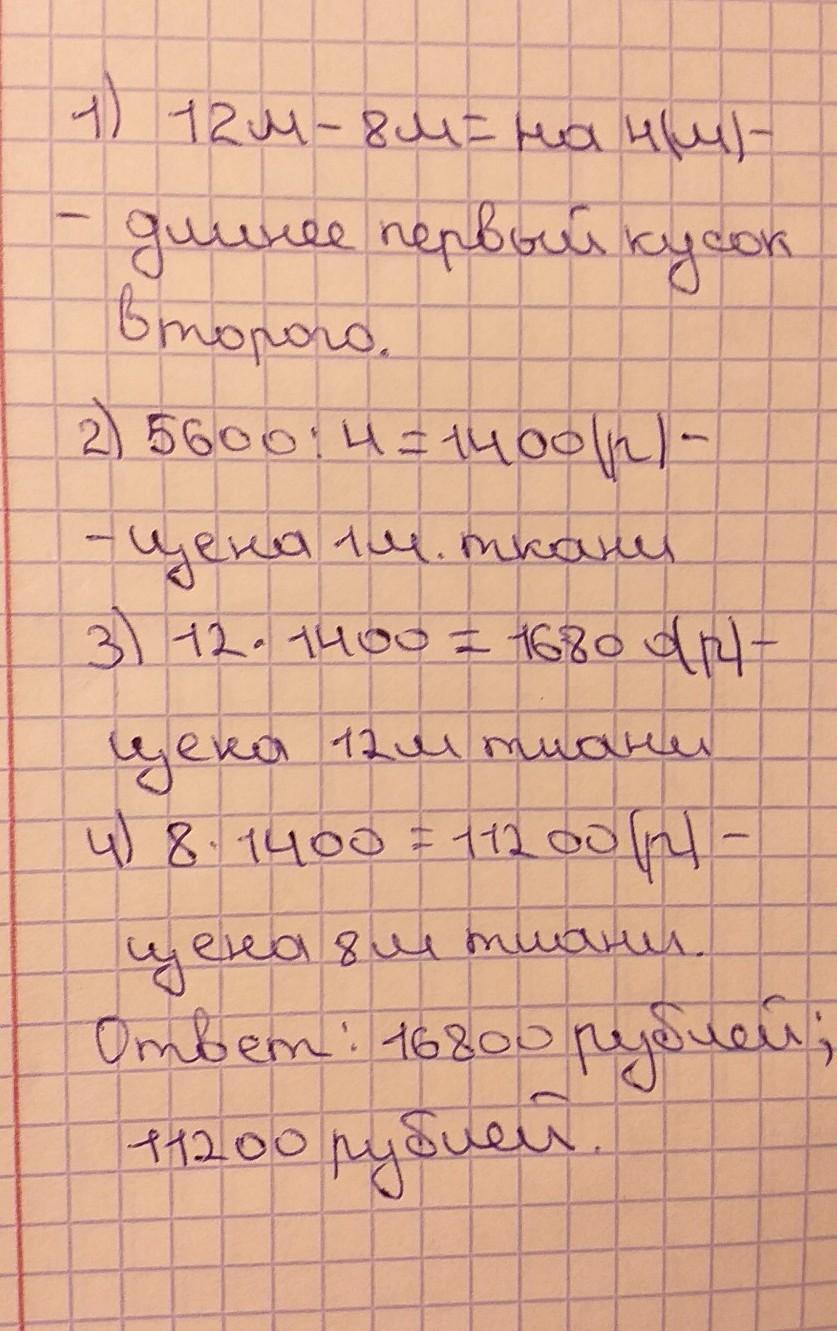 1) 12м - 8м = на 4(м) -
- длиннее первый кусок
второго.
2) 5600 : 4 = 1400 (р) -
- цена 1м. ткани
3) 12 · 1400 = 16800(р) -
цена 12м ткани
4) 8 · 1400 = 11200 (р) -
цена 8м ткани.
Ответ: 16800 рублей;
11200 рублей.